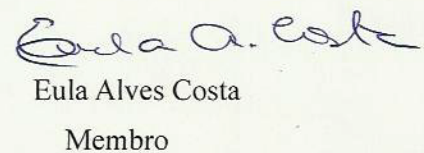 Eula A. Costa
Eula Alves Costa
Membro